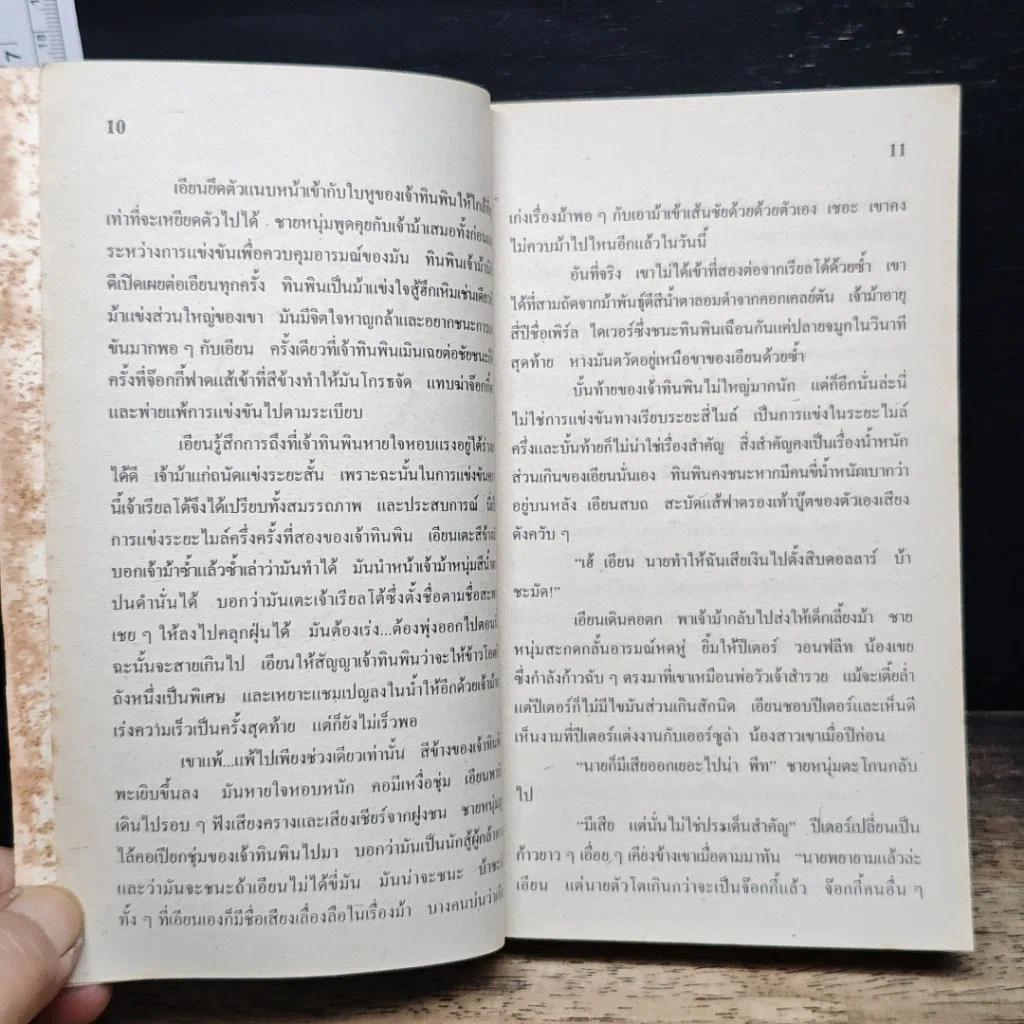 10
เอียนยืดตัวแนบหน้าเข้ากับใบหูของเจ้าทินพินให้ใกล้
เท่าที่จะเหยียดตัวไปได้ ชายหนุ่มพูดคุยกับเจ้าม้าเสมอทั้งก่อน
ระหว่างการแข่งขันเพื่อควบคุมอารมณ์ของมัน ทินพินเจ้าม้า
ดีเปิดเผยต่อเอียนทุกครั้ง ทินพินเป็นม้าแข่งใจสู้ฮึกเหิมเช่นเดียว
ม้าแข่งส่วนใหญ่ของเขา มันมีจิตใจหาญกล้าและอยากชนะการ
ขันมากพอ ๆ กับเอียน ครั้งเดียวที่เจ้าทินพินเมินเฉยต่อชัยชนะ
ครั้งที่จ๊อกกี้ฟาดแส้เข้าที่สีข้างทำให้มันโกรธจัด แทบฆ่าจ๊อกกี้
และพ่ายแพ้การแข่งขันไปตามระเบียบ
เอียนรู้สึกการถึงที่เจ้าทินพินหายใจหอบแรงอยู่ใต้ร่าง
ได้ดี เจ้าม้าแก่ถนัดแข่งระยะสั้น เพราะฉะนั้นในการแข่งขัน
นี้เจ้าเรียลโต้จึงได้เปรียบทั้งสมรรถภาพ และประสบการณ์
การแข่งระยะไมล์ครึ่งครั้งที่สองของเจ้าทินพิน เอียนเตะสีข้าง
บอกเจ้าม้าซ้ำแล้วซ้ำเล่าว่ามันทำได้ มันนำหน้าเจ้าม้าหนุ่มสีน้ำ
ปนดำนั่นได้ บอกว่ามันเตะเจ้าเรียลโต้ซึ่งตั้งชื่อตามชื่อสะพาน
เชย ๆ ให้ลงไปคลุกฝุ่นได้ มันต้องเร่ง...ต้องพุ่งออกไปตอนนี้
ฉะนั้นจะสายเกินไป เอียนให้สัญญาเจ้าทินพินว่าจะให้ข้าวโอ๊ต
ถังหนึ่งเป็นพิเศษ และเหยาะแชมเปญลงในน้ำให้อีกด้วยเจ้าม้า
เร่งความเร็วเป็นครั้งสุดท้าย แต่ก็ยังไม่เร็วพอ
เขาแพ้...แพ้ไปเพียงช่วงเดียวเท่านั้น สีข้างของเจ้าทินพิน
พะเยิบขึ้นลง มันหายใจหอบหนัก คอมีเหงื่อชุ่ม เอียนพา
เดินไปรอบ ๆ ฟังเสียงครางและเสียงเชียร์จากฝูงชน ชายหนุ่ม
ไล้คอเปียกชุ่มของเจ้าทินพินไปมา บอกว่ามันเป็นนักสู้ผู้กล้า
และว่ามันจะชนะถ้าเอียนไม่ได้ขี่มัน มันน่าจะชนะ บ้าชะ
ทั้ง ๆ ที่เอียนเองก็มีชื่อเสียงเลื่องลือในเรื่องม้า บางคนบ่นว่า
11
เก่งเรื่องม้าพอ ๆ กับเอาม้าเข้าเส้นชัยด้วยด้วยตัวเอง เชอะ เขาคง
ไม่ควบม้าไปไหนอีกแล้วในวันนี้
อันที่จริง เขาไม่ได้เข้าที่สองต่อจากเรียลโต้ด้วยซ้ำ เขา
ได้ที่สามถัดจากม้าพันธุ์ดีสีน้ำตาลอมดำจากคอกเคลย์ตัน เจ้าม้าอายุ
สี่ปีชื่อเพิร์ล ไดเวอร์ซึ่งชนะทินพินเฉือนกันแค่ปลายจมูกในวินาที
สุดท้าย หางมันตวัดอยู่เหนือขาของเอียนด้วยซ้ำ
บั้นท้ายของเจ้าทินพินไม่ใหญ่มากนัก แต่ก็อีกนั่นล่ะนี่
ไม่ใช่การแข่งขันทางเรียบระยะสี่ไมล์ เป็นการแข่งในระยะไมล์
ครึ่งและบั้นท้ายก็ไม่น่าใช่เรื่องสำคัญ สิ่งสำคัญคงเป็นเรื่องน้ำหนัก
ส่วนเกินของเอียนนั่นเอง ทินพินคงชนะหากมีคนขี่น้ำหนักเบากว่า
อยู่บนหลัง เอียนสบถ สะบัดแส้ฟาดรองเท้าบู๊ตของตัวเองเสียง
ดังควับ ๆ
“เฮ้ เอียน นายทำให้ฉันเสียเงินไปตั้งสิบดอลลาร์ บ้า
ชะมัด!”
เอียนเดินคอตก พาเจ้าม้ากลับไปส่งให้เด็กเลี้ยงม้า ชาย
หนุ่มสะกดกลั้นอารมณ์หดหู่ ยิ้มให้ปีเตอร์ วอนฟลีท น้องเขย
ซึ่งกำลังก้าวฉับ ๆ ตรงมาที่เขาเหมือนพ่อวัวเจ้าสำรวย แม้จะเตี้ยล่ำ
แต่ปีเตอร์ก็ไม่มีไขมันส่วนเกินสักนิด เอียนชอบปีเตอร์และเห็นดี
เห็นงามที่ปีเตอร์แต่งงานกับเออร์ซูล่า น้องสาวเขาเมื่อปีก่อน
“นายก็มีเสียออกเยอะไปน่า พีท” ชายหนุ่มตะโกนกลับ
ไป
“มีเสีย แต่นั่นไม่ใช่ประเด็นสำคัญ” ปีเตอร์เปลี่ยนเป็น
ก้าวยาว ๆ เอื่อย ๆ เคียงข้างเขาเมื่อตามมาทัน “นายพยายามแล้วล่ะ
เอียน แต่นายตัวโตเกินกว่าจะเป็นจ๊อกกี้แล้ว จ๊อกกี้คนอื่น ๆ